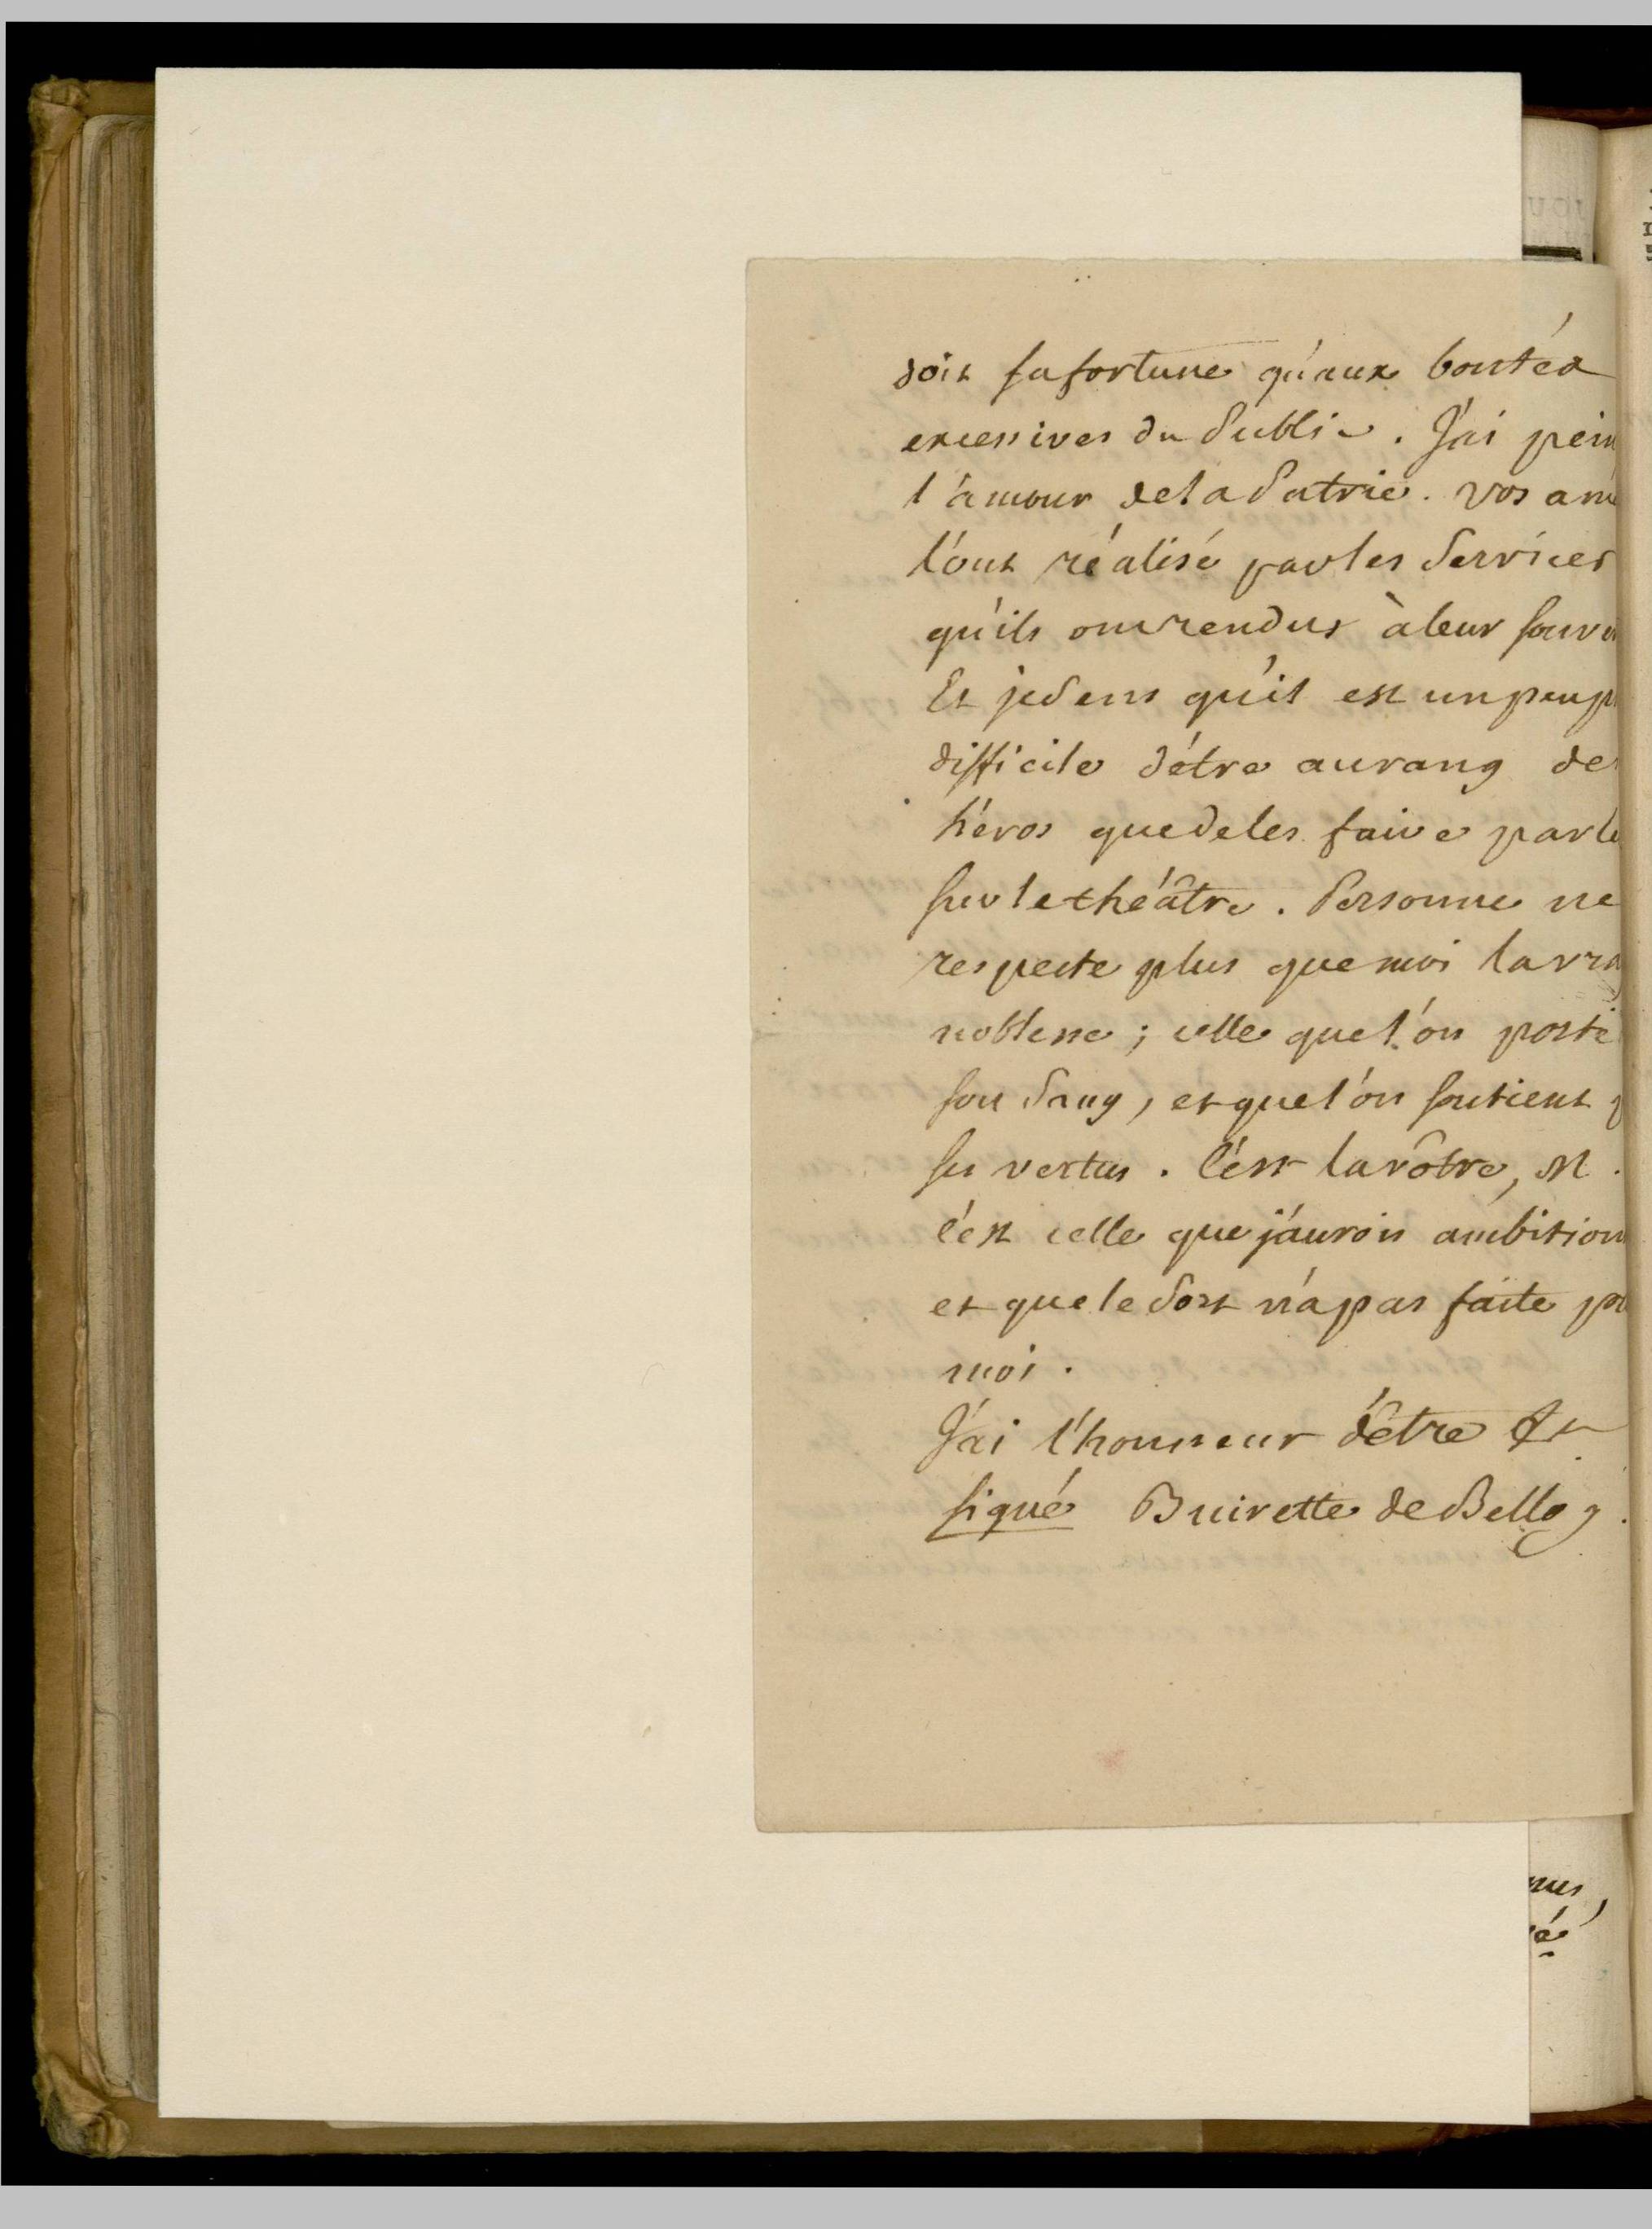 doit sa fortune qu'aux bontés
excessives du Public. J'ai pein
l'amour de la Patrie. vos
l'ont réalisé par les Services
qu'ils ont rendus à leur
Et je sens qu'il est un peu
difficile d'être au rang de
héros que de les faire parle
sur le théâtre. Personne ne
respecte plus que moi la vra
noblesse; celle que l'on porte
son Sang, et que l'on soutient
ses vertus. C'est la vôtre, M.
C'est celle que j'aurois ambition
et que le Sort n'a pas faite po
moi.
J'ai l'honneur d'être &c
signé Buirette de Belloy.
JOU